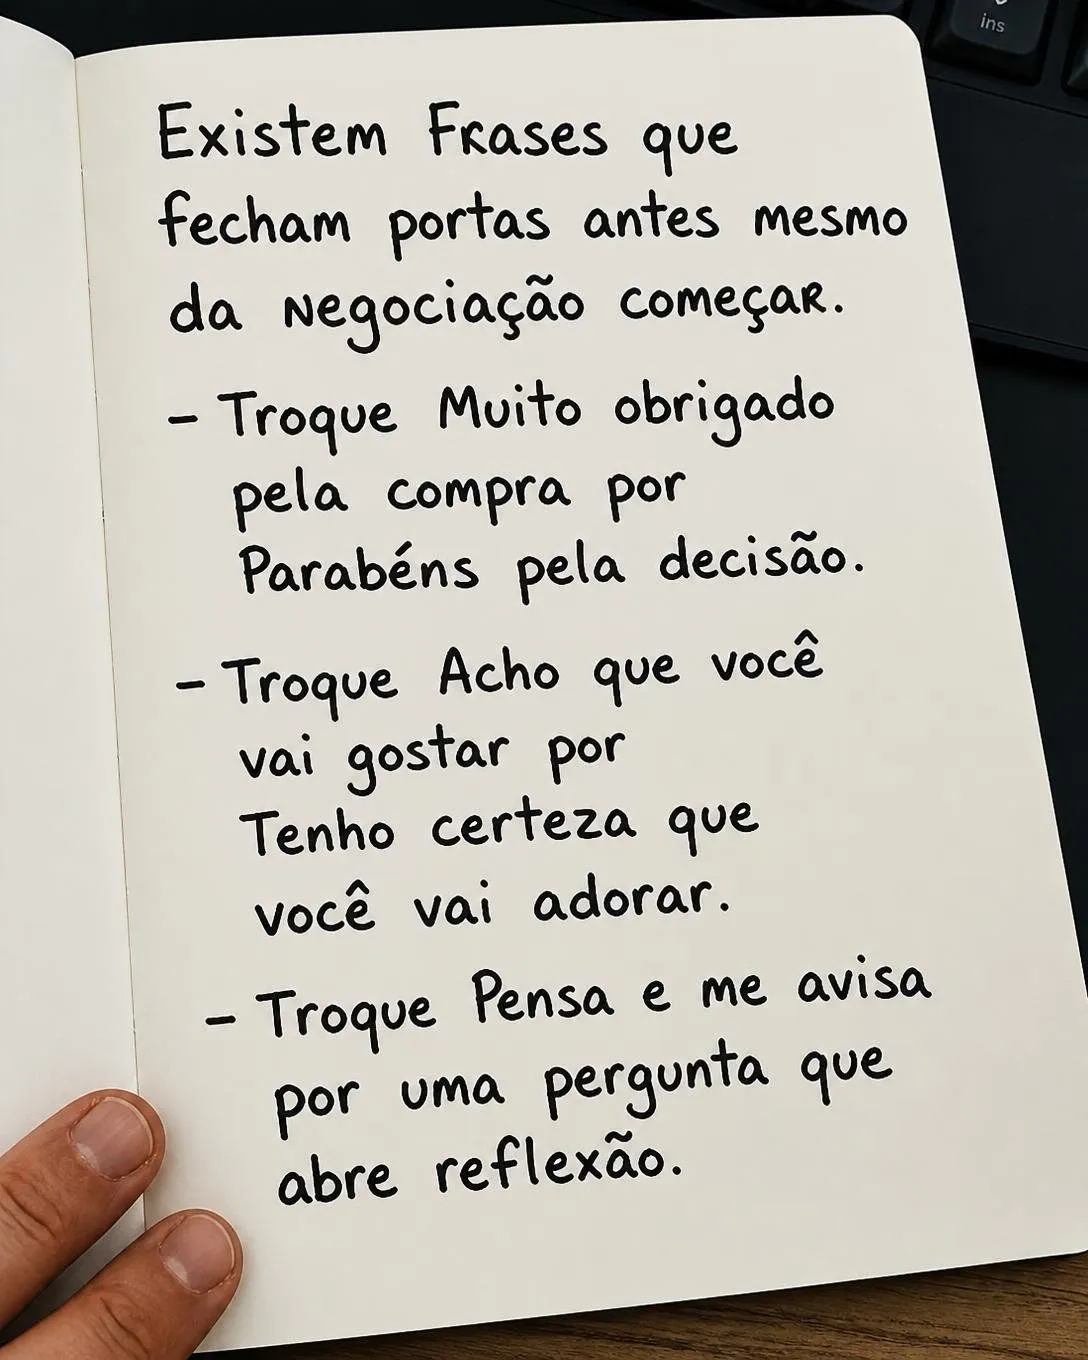 ins
Existem Frases que
fecham portas antes mesmo
da negociação começar.
- Troque Muito obrigado
pela compra por
Parabéns pela decisão.
- Troque Acho que você
vai gostar por
Tenho certeza que
você vai adorar.
- Troque Pensa e me avisa
por uma pergunta que
abre reflexão.